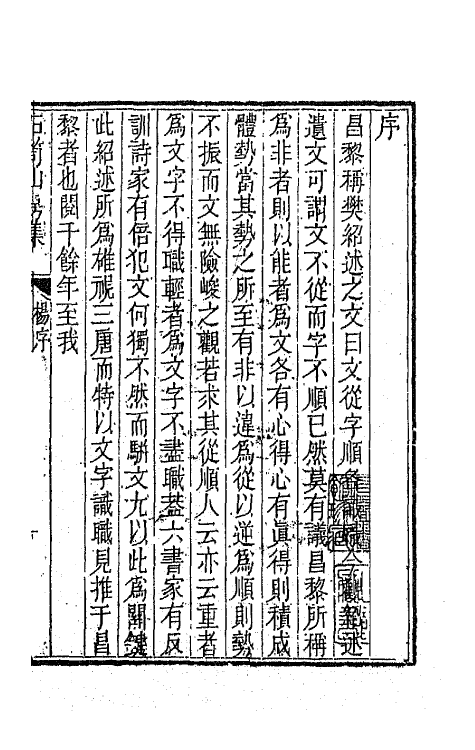 序
昌黎稱樊紹述之文曰文從字順各識職今觀紹述
遺文可謂文不從而字不順已然莫有議昌黎所稱
爲非者則以能者爲文各有心得心有眞得則積成
體勢當其勢之所至有非以違爲從以逆爲順則勢
不振而文無險峻之觀若求其從順人云亦云重者
爲文字不得職輕者爲文字不盡職葢六書家有反
訓詩家有倍犯文何獨不然而駢文尤以此爲關鍵
此紹述所爲雄視三唐而特以文字識職見推于昌
黎者也閱千餘年至我
石笥山房集 楊序